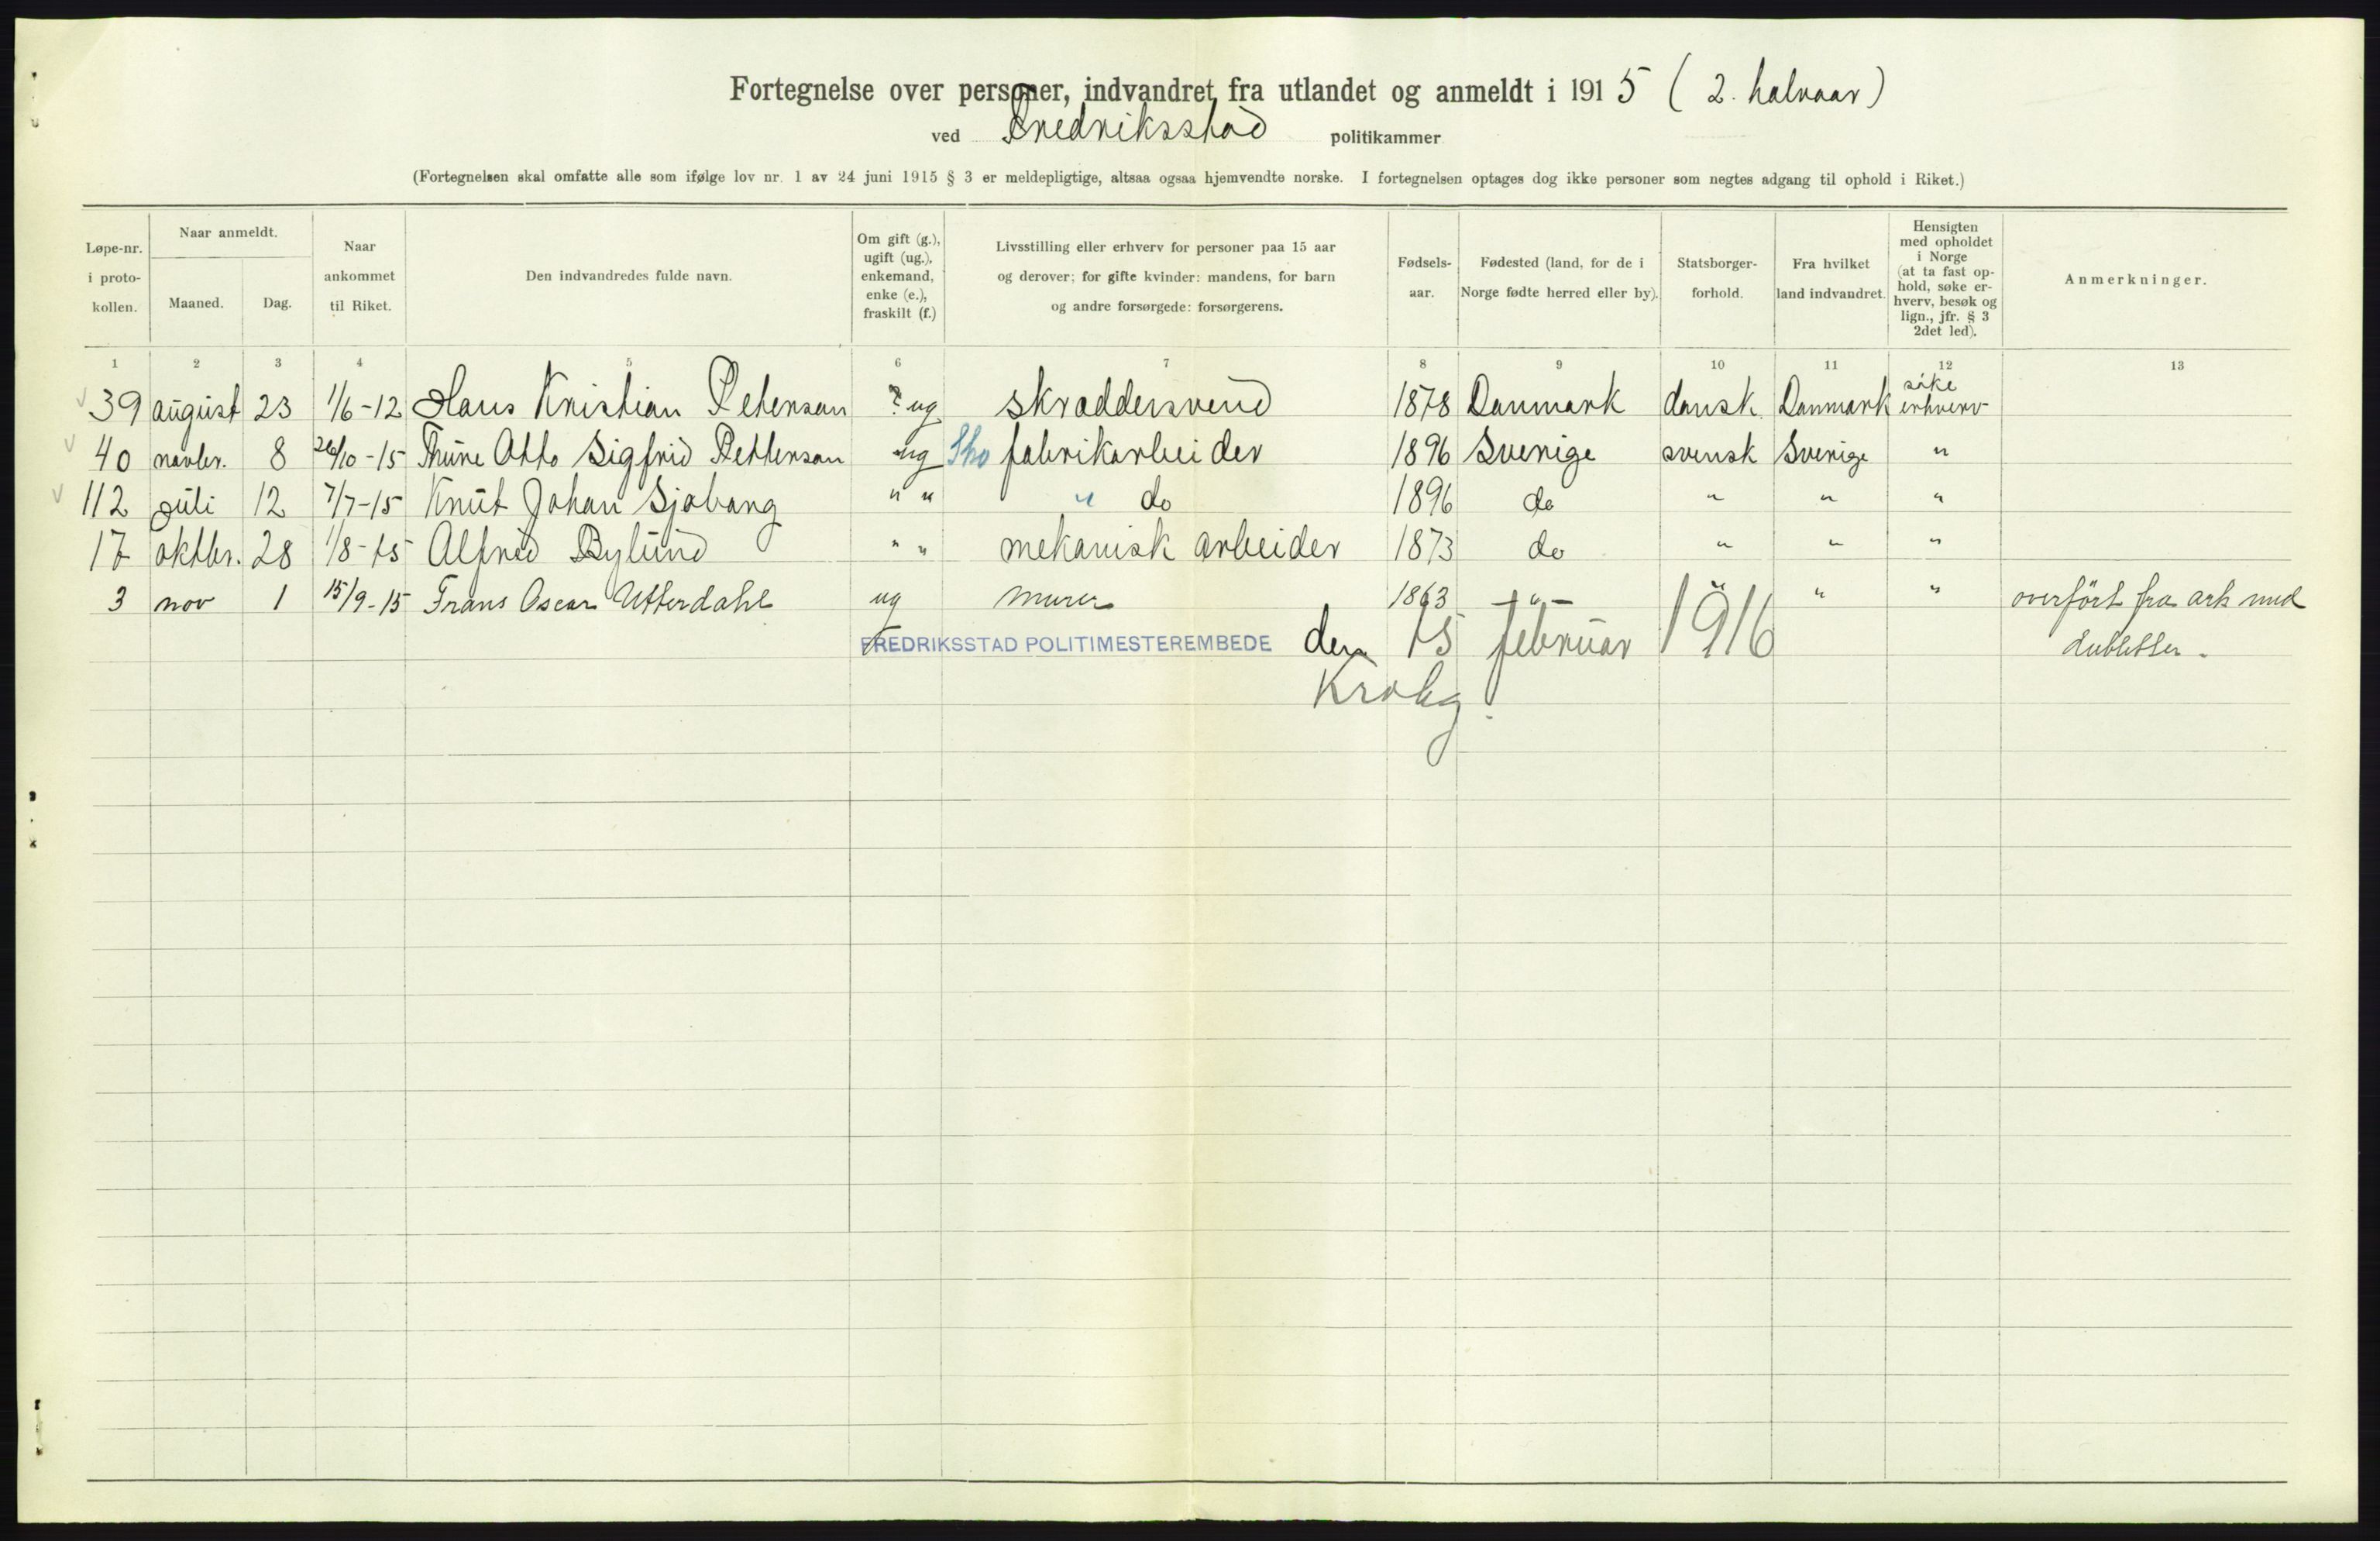 Fortegnelse over personer, indvandret fra utlandet og anmeldt i 1915 (2. halvaar)
ved Fredriksstad politikammer
(Fortegnelsen skal omfatte alle som ifølge lov nr. 1 av 24 juni 1915 § 3 er meldepligtige, altsaa ogsaa hjemvendte norske. I fortegnelsen optages dog ikke personer som negtes adgang til ophold i Riket.)
Løpe-nr. i proto-kollen.
Naar anmeldt.
Maaned.
Dag.
Naar ankommet til Riket.
Den indvandredes fulde navn.
Om gift (g.), ugift (ug.), enkemand, enke (e.), fraskilt (f.)
Livsstilling eller erhverv for personer paa 15 aar og derover; for gifte kvinder: mandens, for barn og andre forsørgede: forsørgerens.
Fødsels-aar.
Fødested (land, for de i Norge fødte herred eller by).
Statsborger-forhold.
Fra hvilket land indvandret.
Hensigten med opholdet i Norge (at ta fast op-hold, søke er-hverv, besøk og lign., jfr. § 3 2det led).
Anmerkninger.
1 2 3 4 5 6 7 8 9 10 11 12 13
39 august 23 1/6-12 Hans Kristian Petersson ? ug skræddersvend 1878 Danmark dansk Danmark söke erhverv
40 novbr. 8 26/10-15 Thure Otto Sigfrid Pettersson ug fabrikarbeider 1896 Sverige svensk Sverige "
112 juli 12 7/7-15 Knut Johan Sjøberg " " " do 1896 do " " "
17 oktbr. 28 1/8-15 Alfred Bylund " " mekanisk arbeider 1873 do " " "
3 nov 1 15/9-15 Frans Oscar Utterdahl ug murer 1863 -"- " " " overført fra ark med
FREDRIKSSTAD POLITIMESTEREMBEDE den 15 februar 1916 dubletter.
Krohg.